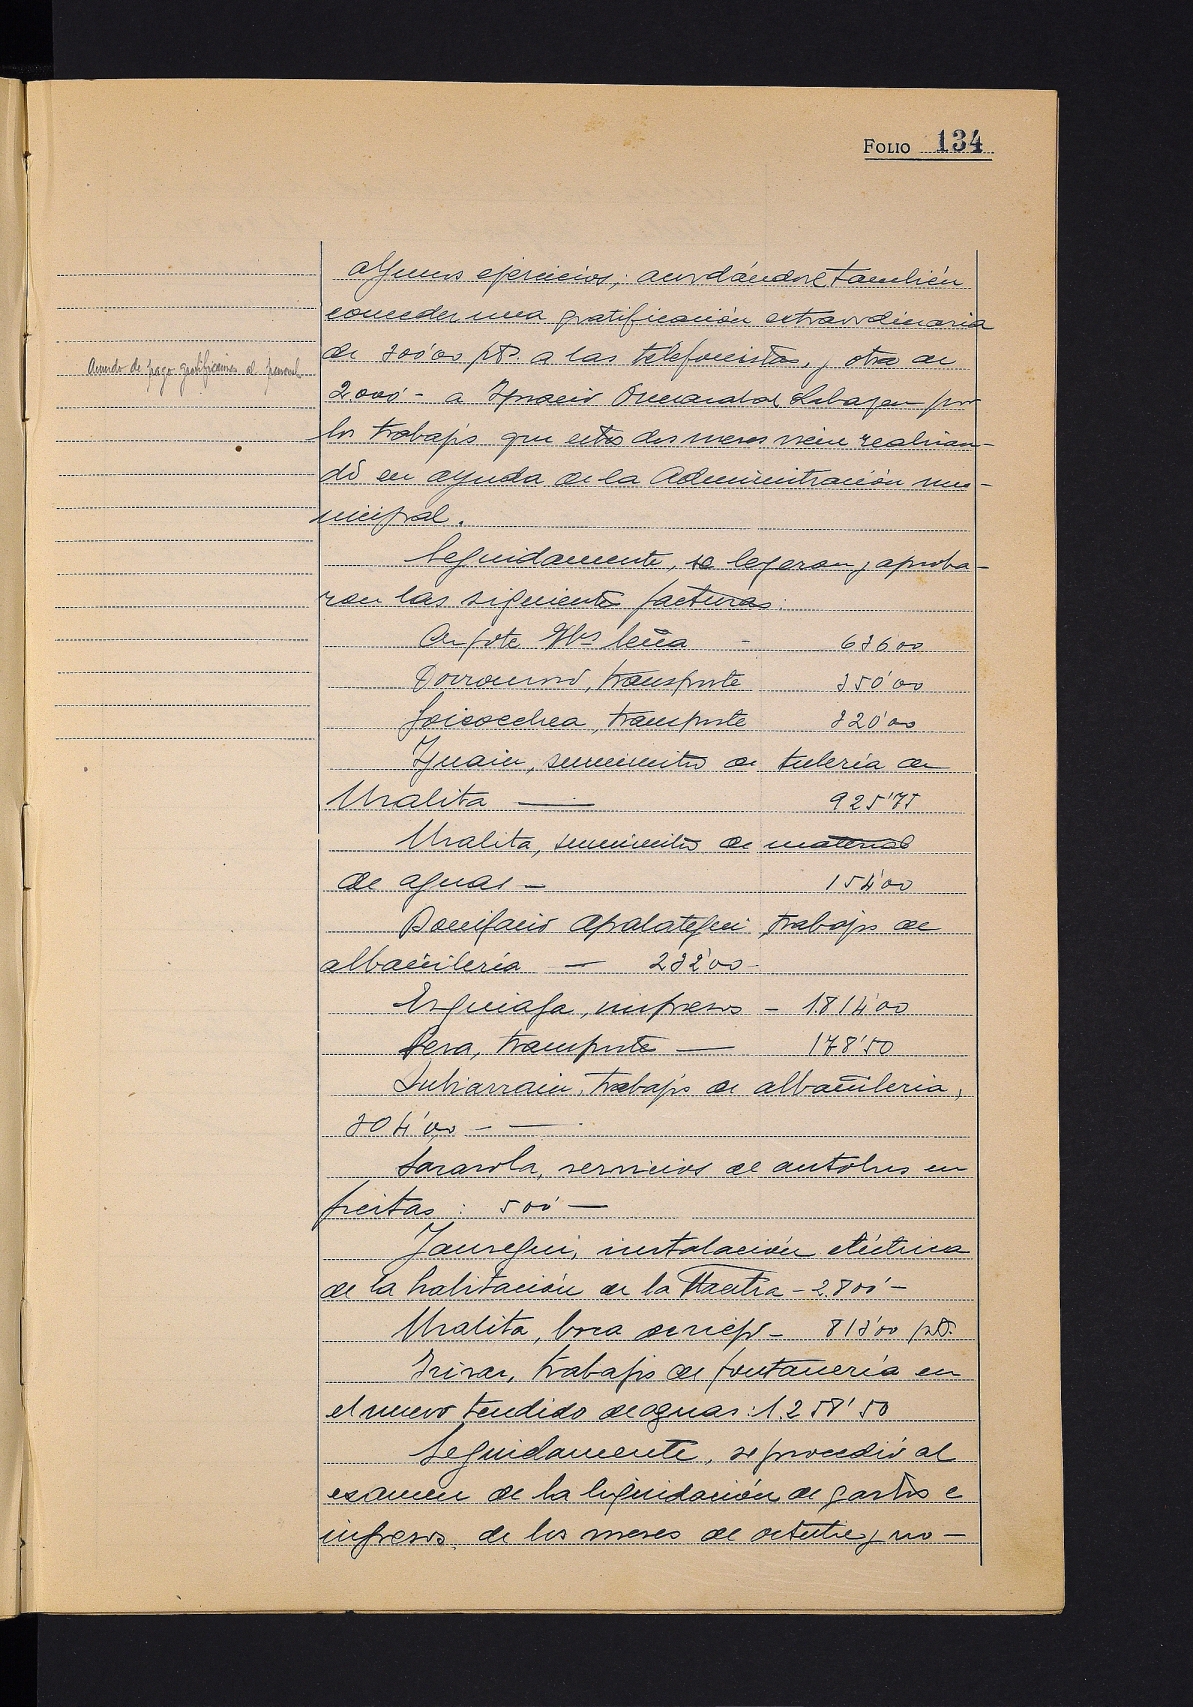 FOLIO 134
algunos ejercicios; acordándose también
conceder una gratificación extraordinaria
de 300'00 pts. a las telefonistas, y otra de
Acuerdo de pago gratificaciones al personal
2000'- a Ignacio Libazen por
los trabajos que estos dos meses viene realizan-
do en ayuda de la Administración mu-
nicipal.
Seguidamente, se leyeron y aproba-
ron las siguientes facturas:
leña - 636'00
transporte 350'00
Goicoechea, transporte 320'00
suministro de tubería de
Uralita — 925'75
Uralita, suministro de material
de aguas - 154'00
Bonifacio Apalategui, trabajos de
albañilería — 232'00-
Esquiaga, impresos - 1814'00
Pera, transporte — 178'50
Zubiarrain, trabajos de albañilería,
304'00 - —
Sarasola, servicios de autobus en
fiestas: 500'—
Jauregui, instalación eléctrica
de la habitación de la Maestra - 2.800'-
Uralita, boca de riego - 813'00 pts.
Irizar, trabajos de fontanería en
el nuevo tendido de aguas: 1.258'50
Seguidamente, se procedió al
examen de la liquidación de gastos e
ingresos, de los meses de octubre y no-